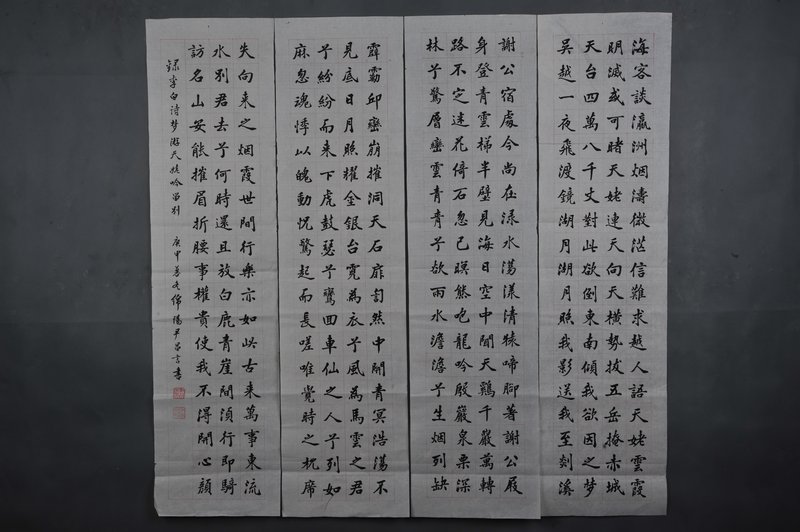 海客談瀛洲烟濤微茫信難求越人語天姥雲霞
明滅或可睹天姥連天向天橫勢拔五岳掩赤城
天台四萬八千丈對此欲倒東南傾我欲因之夢
吳越一夜飛渡鏡湖月湖月照我影送我至剡溪
謝公宿處今尚在淥水蕩漾清猿啼腳著謝公屐
身登青雲梯半壁見海日空中聞天鷄千巖萬轉
路不定迷花倚石忽已暝熊咆龍吟殷巖泉栗深
林兮驚層巒雲青青兮欲雨水澹澹兮生烟列缺
霹靂邱巒崩摧洞天石扉訇然中開青冥浩蕩不
見底日月照耀金銀台霓為衣兮風為馬雲之君
兮紛紛而來下虎鼓瑟兮鸞回車仙之人兮列如
麻忽魂悸以魄動怳驚起而長嗟唯覺時之枕席
失向来之烟霞世間行樂亦如此古来萬事東流
水别君去兮何時還且放白鹿青崖間須行即騎
訪名山安能摧眉折腰事權貴使我不得開心顏
録李白詩梦游天姥吟留别 綿陽尹 言書